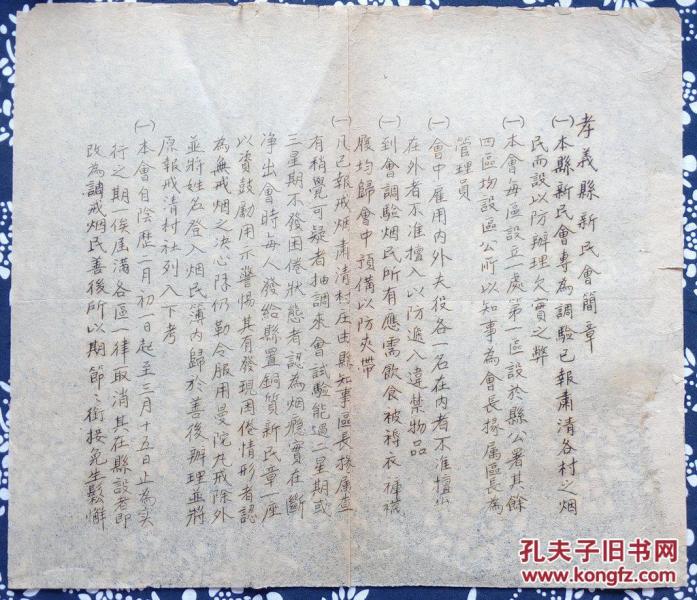 孝義縣新民會簡章
㈠本縣新民會專為調驗已報肅清各村之烟
民而設以防辦理欠實之弊
㈠本會每區設立一處第一區設於縣公署其餘
四區均設區公所以知事為會長掾屬區長為
管理員
㈠會中雇用內外夫役各一名在內者不准擅出
在外者不准擅入以防遞入違禁物品
㈠到會調驗烟民所有應需飲食被褥衣褲襪
履均歸會中預備以防夾帶
㈠凡已報戒烟肅清村庄由縣知事區長掾屬查
有稍覺可疑者抽調來會試驗能過二星期或
三星期不發困倦狀態者認為烟癮實在斷
净出會時每人發給縣置銅質新民章一座
以資鼓勵用示警惕其有發現困倦情形者認
為無戒烟之决心除仍勒令服用曼陀丸戒除外
並將姓名登入烟民簿內歸於善後辦理並將
原報戒清村社列入下考
㈠本會自陰歷二月初一日起至三月十五日止為实
行之期一俟届滿各區一律取消其在縣設者即
改為調戒烟民善後所以期節〻銜接免生鬆懈
孔夫子旧书网
www.kongfz.com